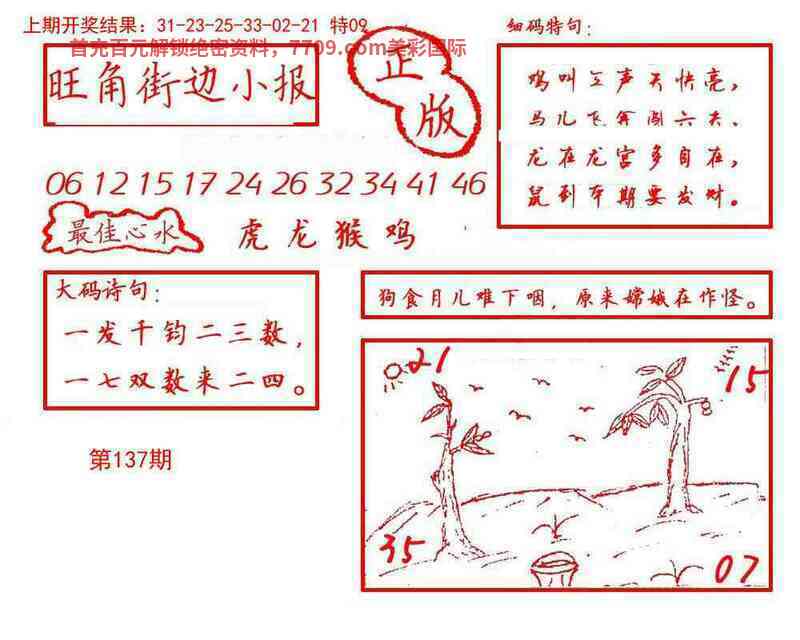 上期开奖结果：31-23-25-33-02-21 特09
首充百元解锁绝密资料，7709.com美彩国际
旺角街边小报
正版
细码特句：
鸡叫三声天快亮，
马儿飞奔闯六夫、
龙在龙宫多自在，
鼠到本期要发财。
06 12 15 17 24 26 32 34 41 46
最佳心水
虎龙猴鸡
大码诗句：
一发千钧二三数，
一七双数来二四。
狗食月儿难下咽，原来嫦娥在作怪。
第137期
21
15
35
07